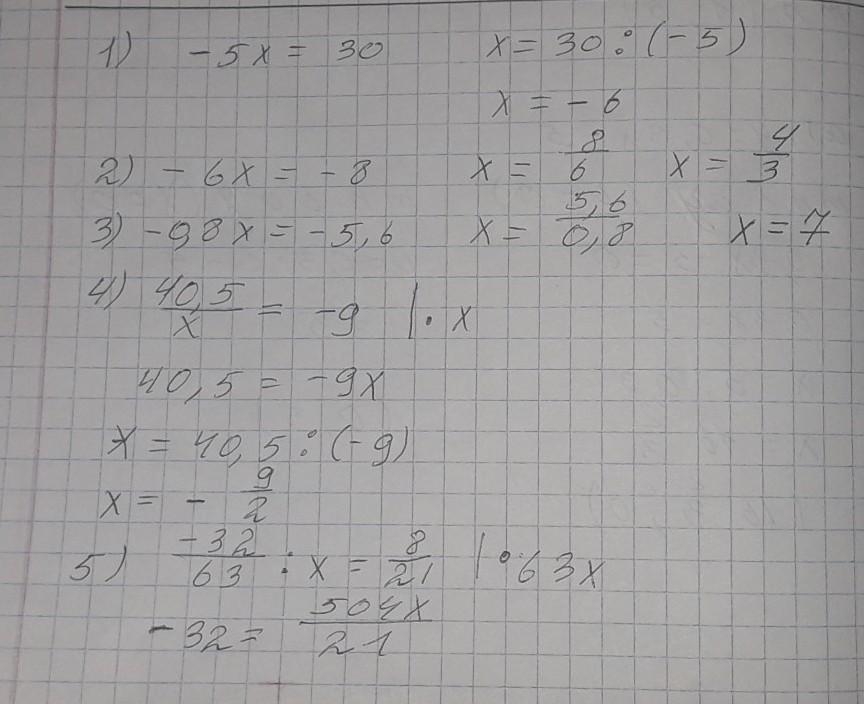 1) -5x = 30 x = 30 : (-5)
x = -6
2) -6x = -8 x = 8/6 x = 4/3
3) -0,8x = -5,6 x = 5,6/0,8 x = 7
4) 40,5/x = -9 | · x
40,5 = -9x
x = 40,5 : (-9)
x = - 9/2
5) -32/63 : x = 8/21 | · 63x
-32 = 504x/21